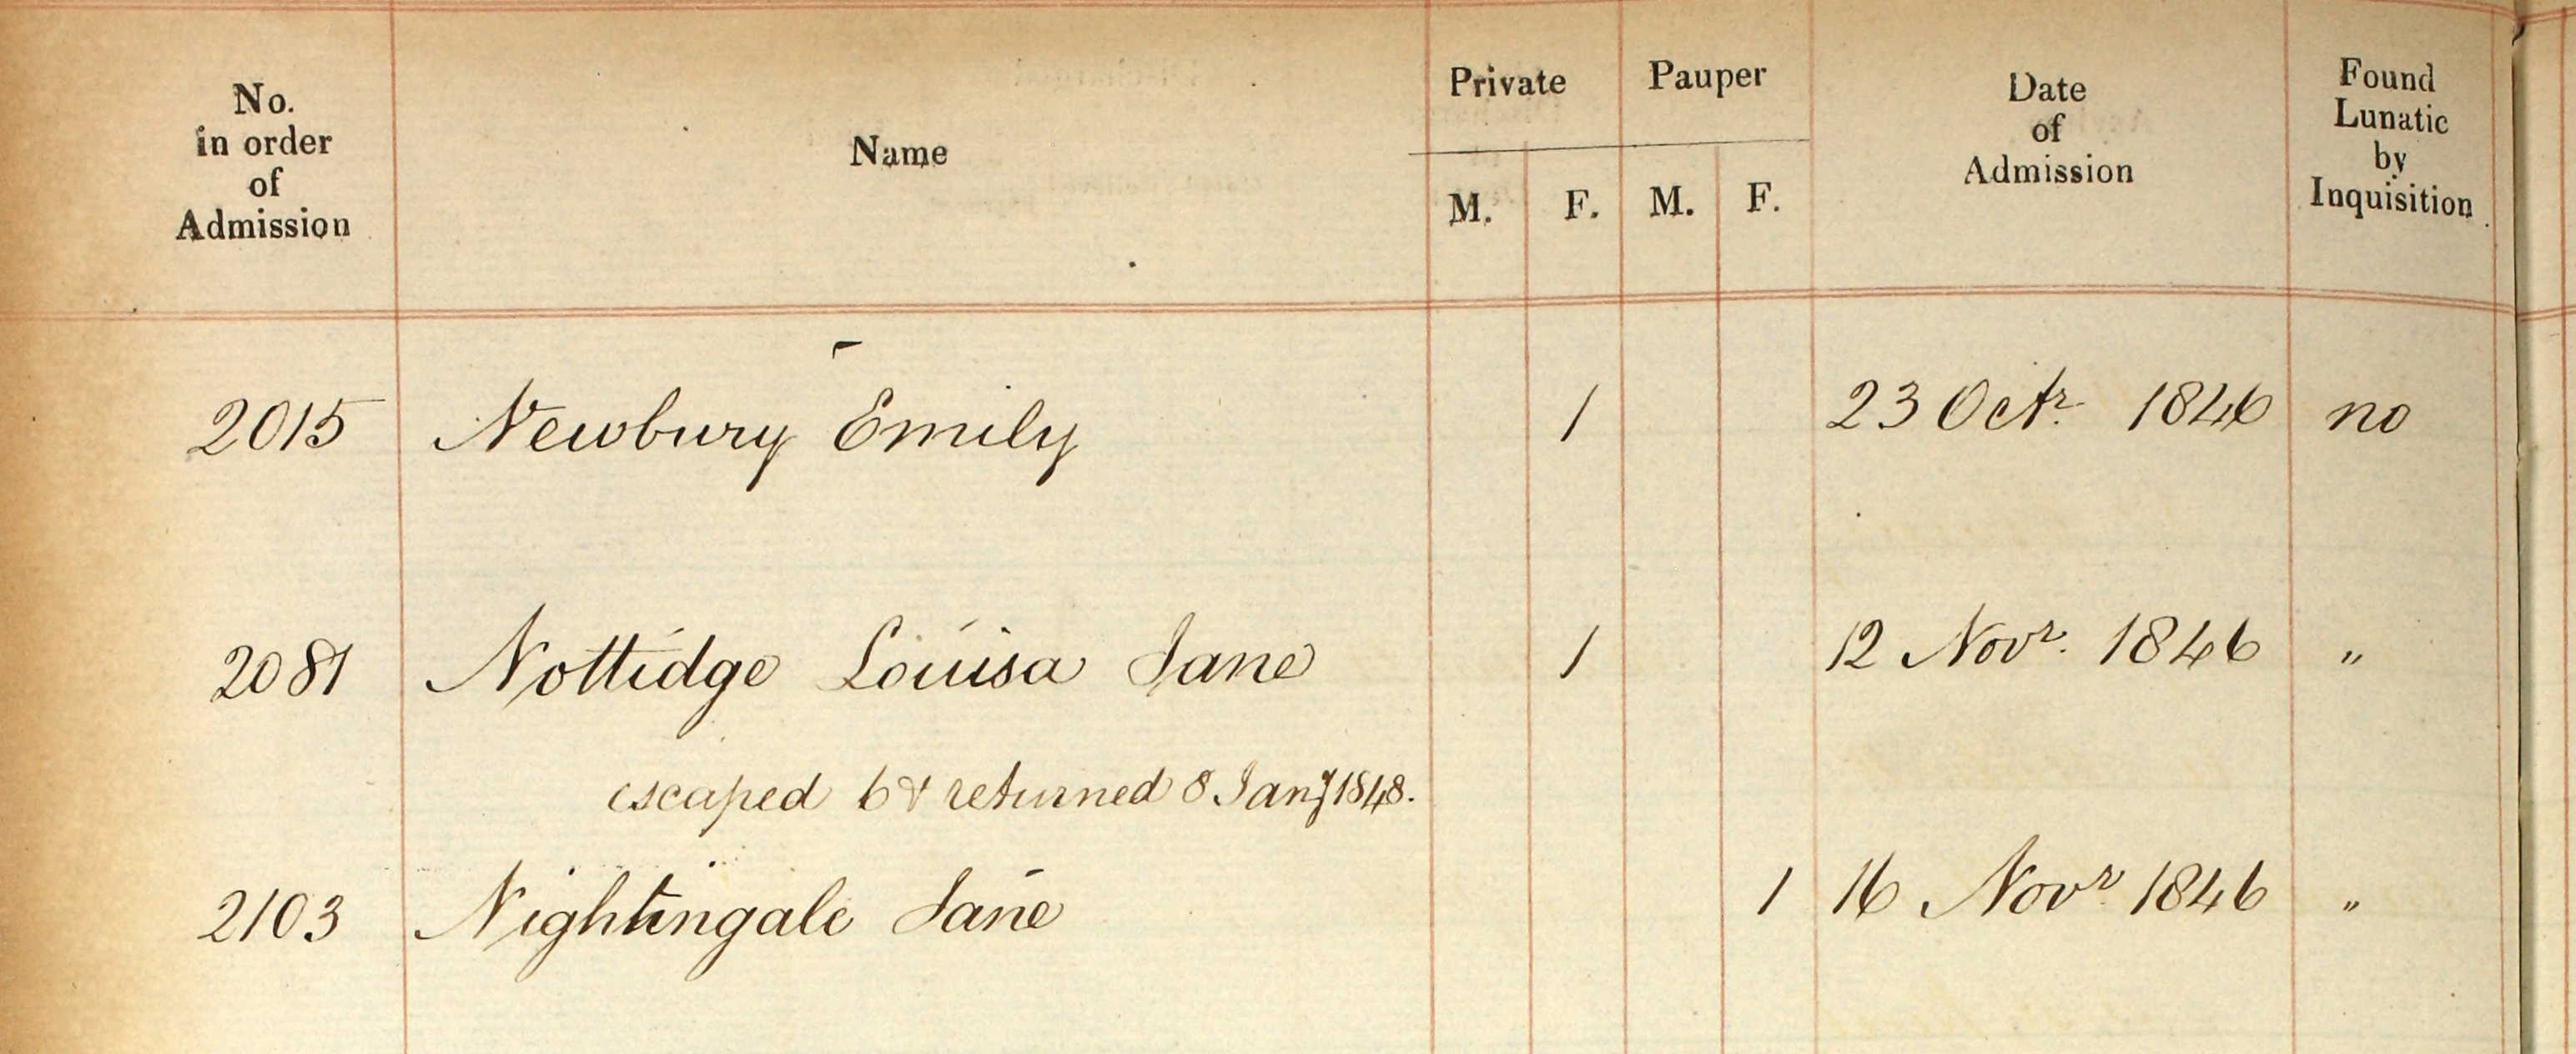 No. in order of Admission Name Private M. F. Pauper M. F. Date of Admission Found Lunatic by Inquisition
2015 Newbury Emily 1 23 Octr. 1846 no
2081 Nottidge Louisa Jane 1 12 Novr. 1846 "
escaped 6 & returned 8 Jany 1848.
2103 Nightingale Jane 1 16 Novr. 1846 "